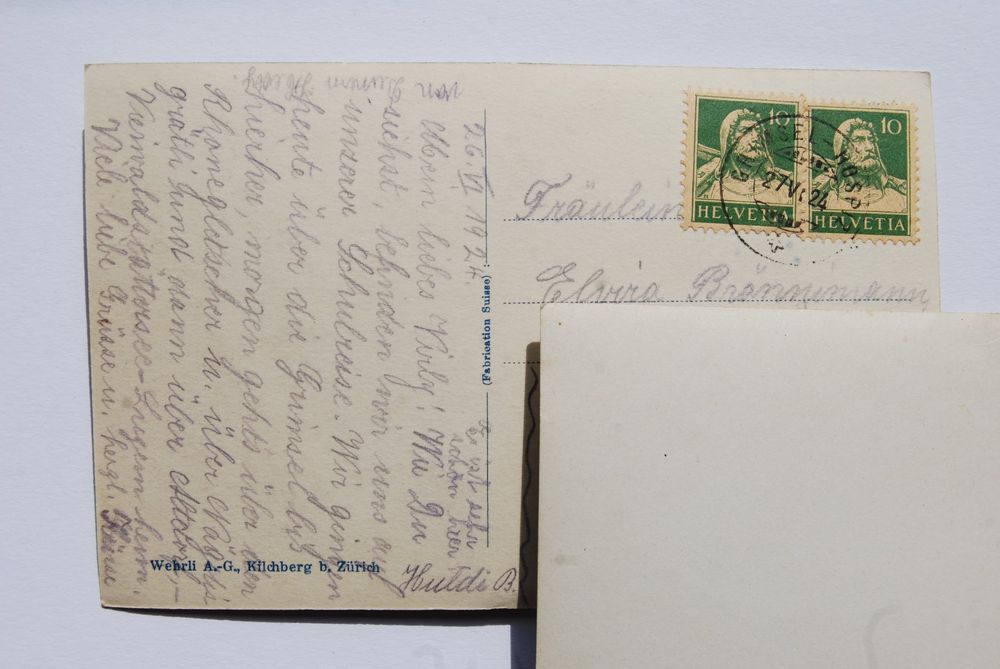 26. VI 1924
liebes Wie Du
siehst befinden wir uns auf
unserer Schulreise. Wir gingen
heute über die Grimsel bis
hierher, morgen gehts über den
Rhonegletscher u. über Nägelis
grätli und dann über Altdorf-
Vierwaldstättersee-Luzern heim.
Viele liebe Grüsse u. herzl. Küsse
von
Es ist sehr
schön hier!
Huldi B.
Wehrli A.-G., Kilchberg b. Zürich
(Fabrication Suisse)
10
HELVETIA
10
HELVETIA
GRIMSEL-HOSPIZ
27 VI 24
Fräulein
Elvira Brönnimann,